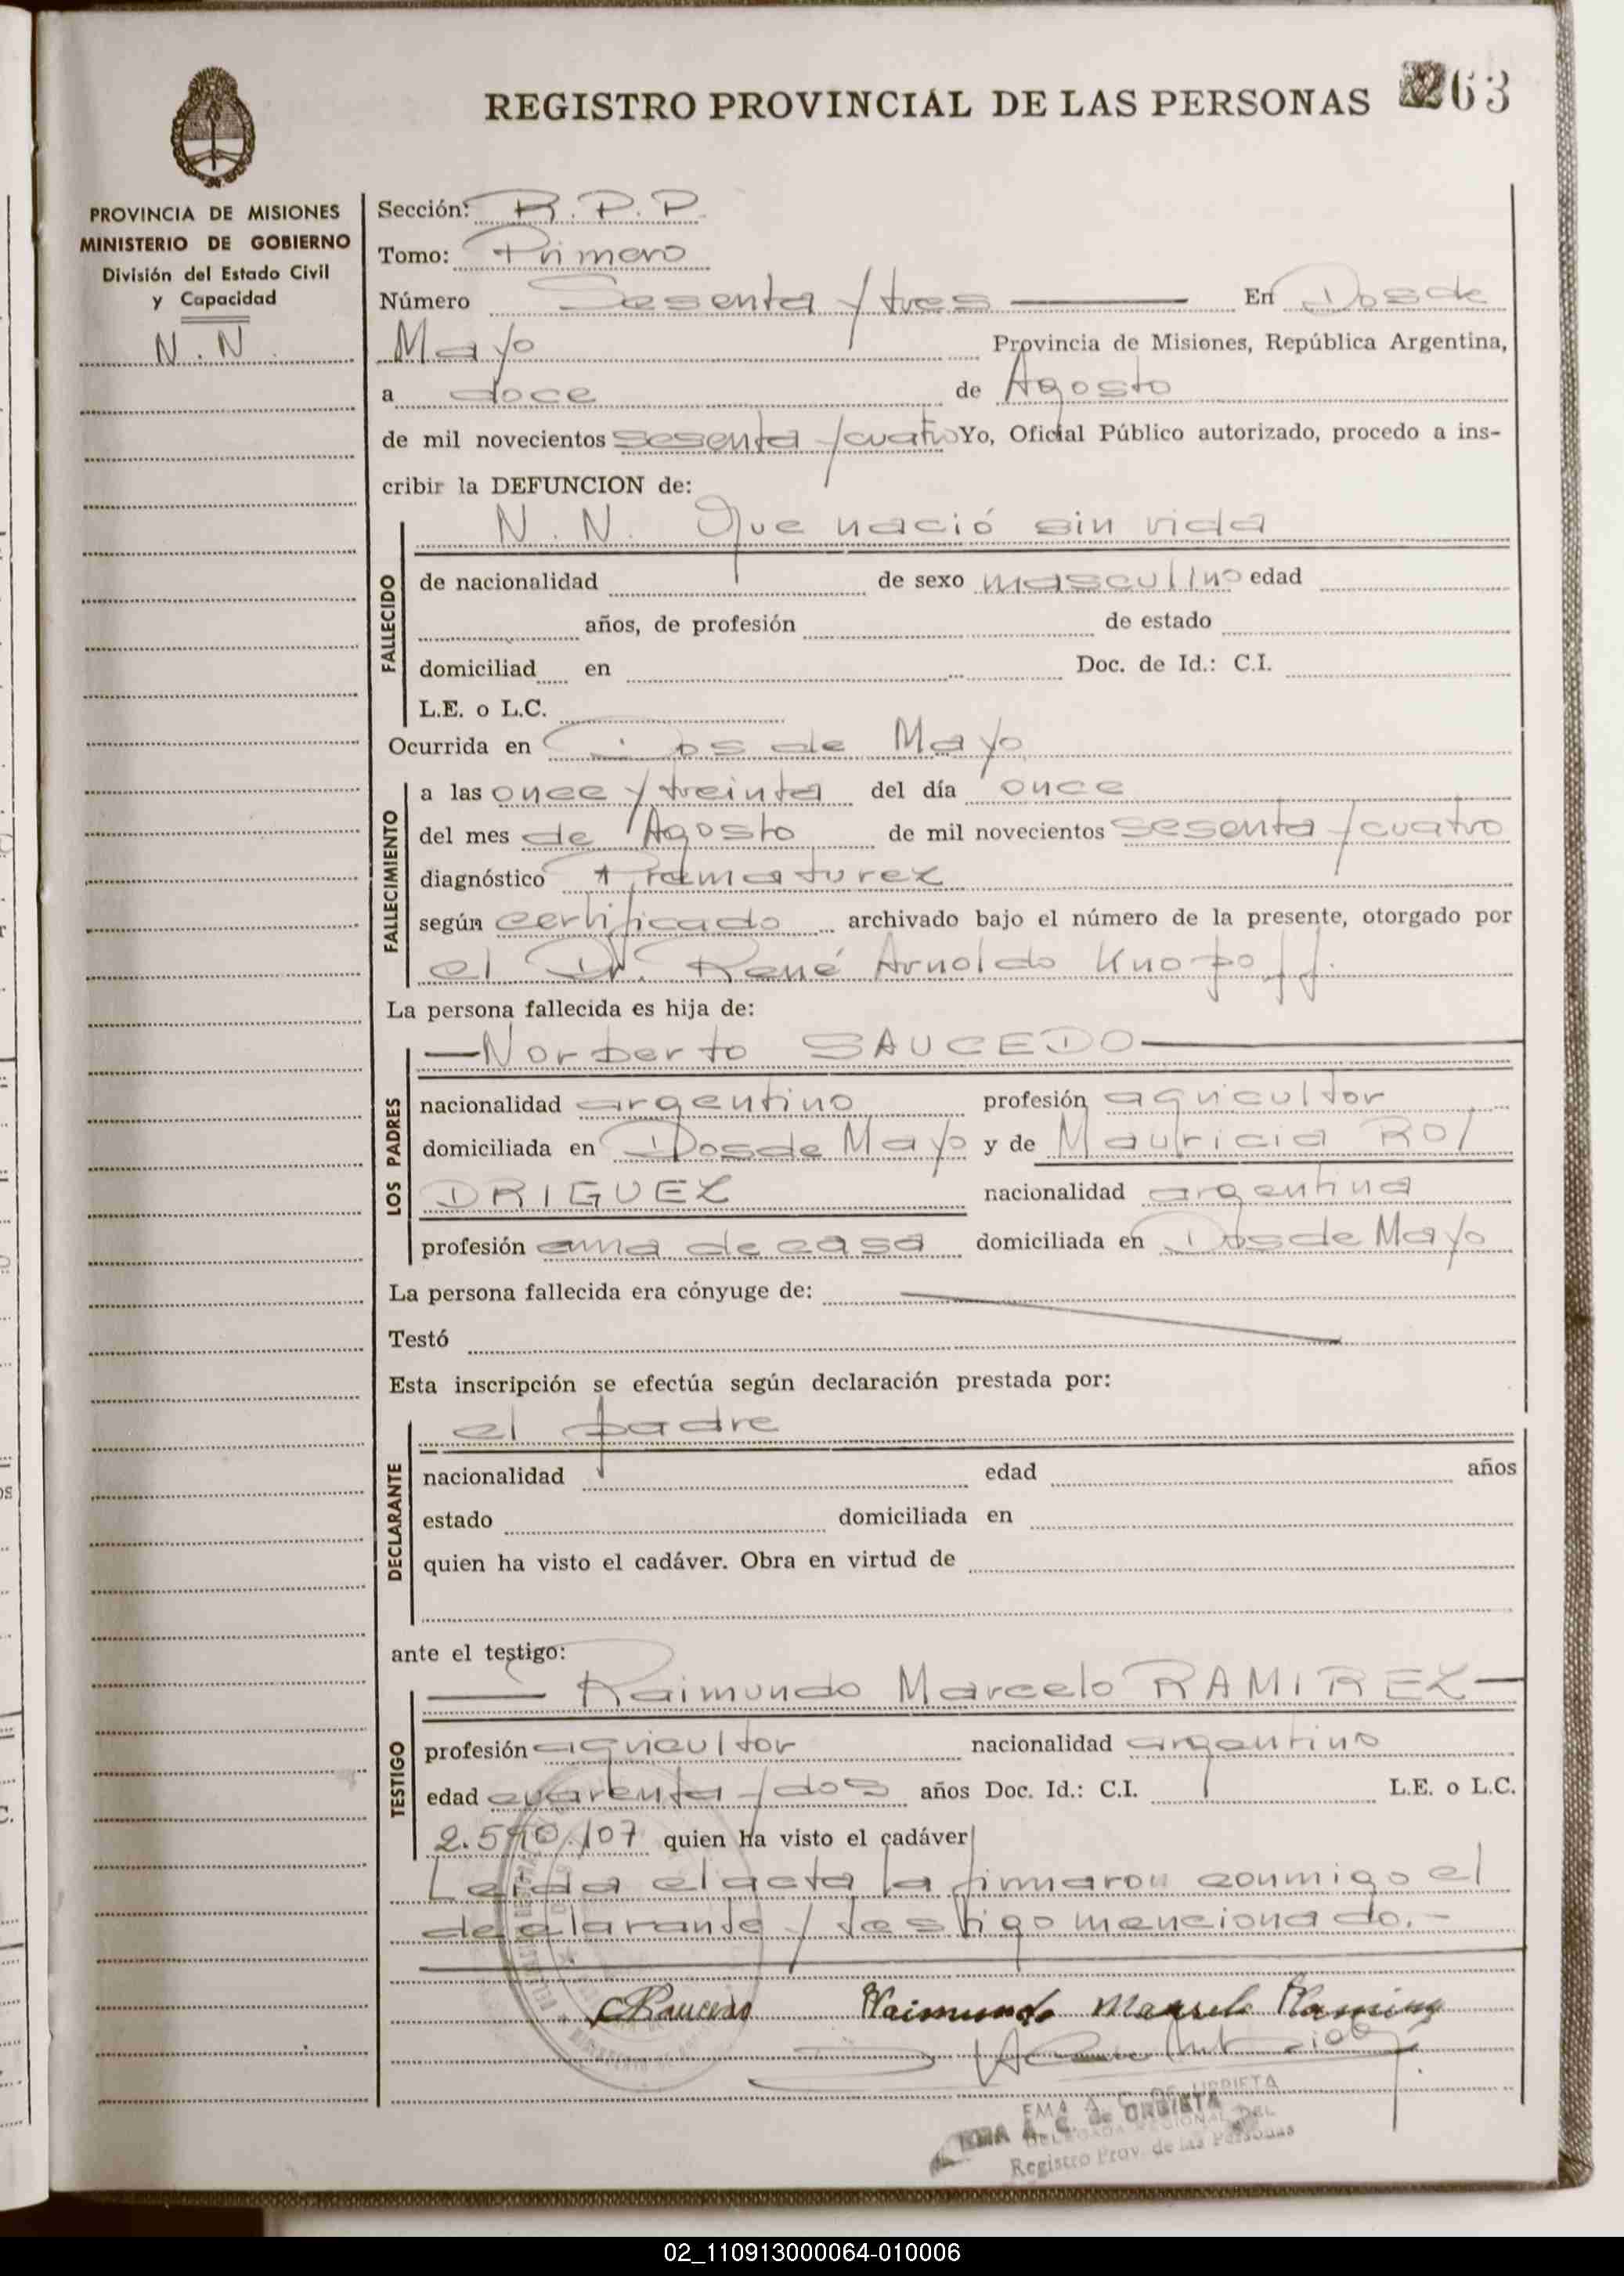 REGISTRO PROVINCIAL DE LAS PERSONAS 63
PROVINCIA DE MISIONES
MINISTERIO DE GOBIERNO
División del Estado Civil
y Capacidad
N.N.
Sección: R.P.P.
Tomo: Primero
Número Sesenta y tres En Dos de
Mayo Provincia de Misiones, República Argentina,
a doce de Agosto
de mil novecientos sesenta y cuatro Yo, Oficial Público autorizado, procedo a ins-
cribir la DEFUNCION de:
N. N. Que nació sin vida
FALLECIDO
de nacionalidad de sexo masculino edad
años, de profesión de estado
domiciliad en Doc. de Id.: C.I.
L.E. o L.C.
Ocurrida en Dos de Mayo
FALLECIMIENTO
a las once y treinta del día once
del mes de Agosto de mil novecientos sesenta y cuatro
diagnóstico Prematurez
según certificado archivado bajo el número de la presente, otorgado por
el Dr. René Arnoldo Knopoff.
La persona fallecida es hija de:
LOS PADRES
—Norberto SAUCEDO—
nacionalidad argentino profesión agricultor
domiciliada en Dos de Mayo y de Mauricia RO/
DRIGUEZ nacionalidad argentina
profesión ama de casa domiciliada en Dos de Mayo
La persona fallecida era cónyuge de:
Testó
Esta inscripción se efectúa según declaración prestada por:
DECLARANTE
el padre
nacionalidad edad años
estado domiciliada en
quien ha visto el cadáver. Obra en virtud de
ante el testigo:
TESTIGO
— Raimundo Marcelo RAMIREZ —
profesión agricultor nacionalidad argentino
edad cuarenta y dos años Doc. Id.: C.I. L.E. o L.C.
2.540.107 quien ha visto el cadáver
Leída el acta la firmaron conmigo el
declarante y testigo mencionado.-
Raimundo Marcelo Ramirez
EMA A. C. de URBIETA
DELEGADA REGIONAL DEL
Registro Prov. de las Personas
02_110913000064-010006